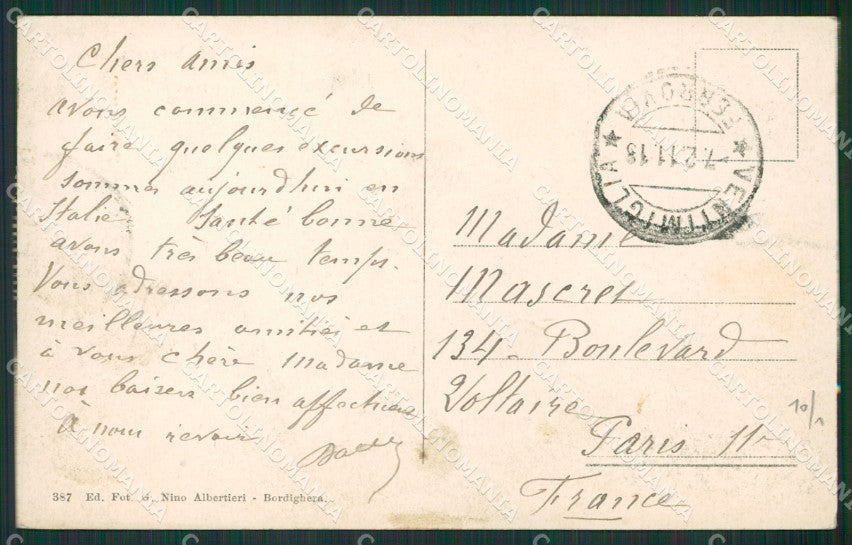 Chers amis
avons commencé de
faire quelques excursions
sommes aujourdhui en
Italie. Santé bonne
avons très beau temps.
Vous adressons nos
meilleures amitiés et
à vous chère Madame
nos baisers bien affectueux
à nous revoir
387 Ed. Fot. G. Nino Albertieri - Bordighera.
VENTIMIGLIA
7.2.11.18
Madame
Mascret
134 Boulevard
Voltaire
Paris 11e
France
10/1
CARTOLINOMANIA